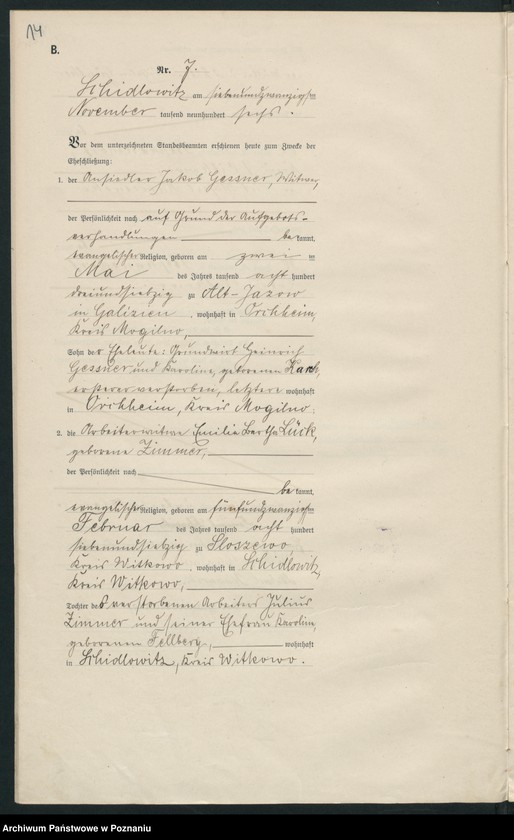 14
B.
Nr. 7.
Schidlowitz am siebenundzwanzigsten
November tausend neunhundert sechs.
Vor dem unterzeichneten Standesbeamten erschienen heute zum Zwecke der
Eheschließung:
1. der Ansiedler Jakob Gessner, Witwer,
der Persönlichkeit nach auf Grund der Aufgebots-
verhandlungen be kannt,
evangelischer Religion, geboren am zwei ten
Mai des Jahres tausend acht hundert
dreiundsiebzig zu Alt-Jazow
in Galizien, wohnhaft in Orchheim,
Kreis Mogilno,
Sohn der Eheleute: Grundwirt Heinrich
Gessner und Karoline, geborenen
ersterer verstorben, letztere wohnhaft
in Orchheim, Kreis Mogilno.
2. die Arbeiterwitwe Emilie Bertha Lück,
geborene Zimmer,
der Persönlichkeit nach
be kannt,
evangelischer Religion, geboren am fünfundzwanzigsten
Februar des Jahres tausend acht hundert
siebenundsiebzig zu Sloszewo,
Kreis Witkowo, wohnhaft in Schidlowitz,
Kreis Witkowo,
Tochter des verstorbenen Arbeiters Julius
Zimmer und seiner Ehefrau Karoline,
geborenen Fellberg, wohnhaft
in Schidlowitz, Kreis Witkowo.
Archiwum Państwowe w Poznaniu